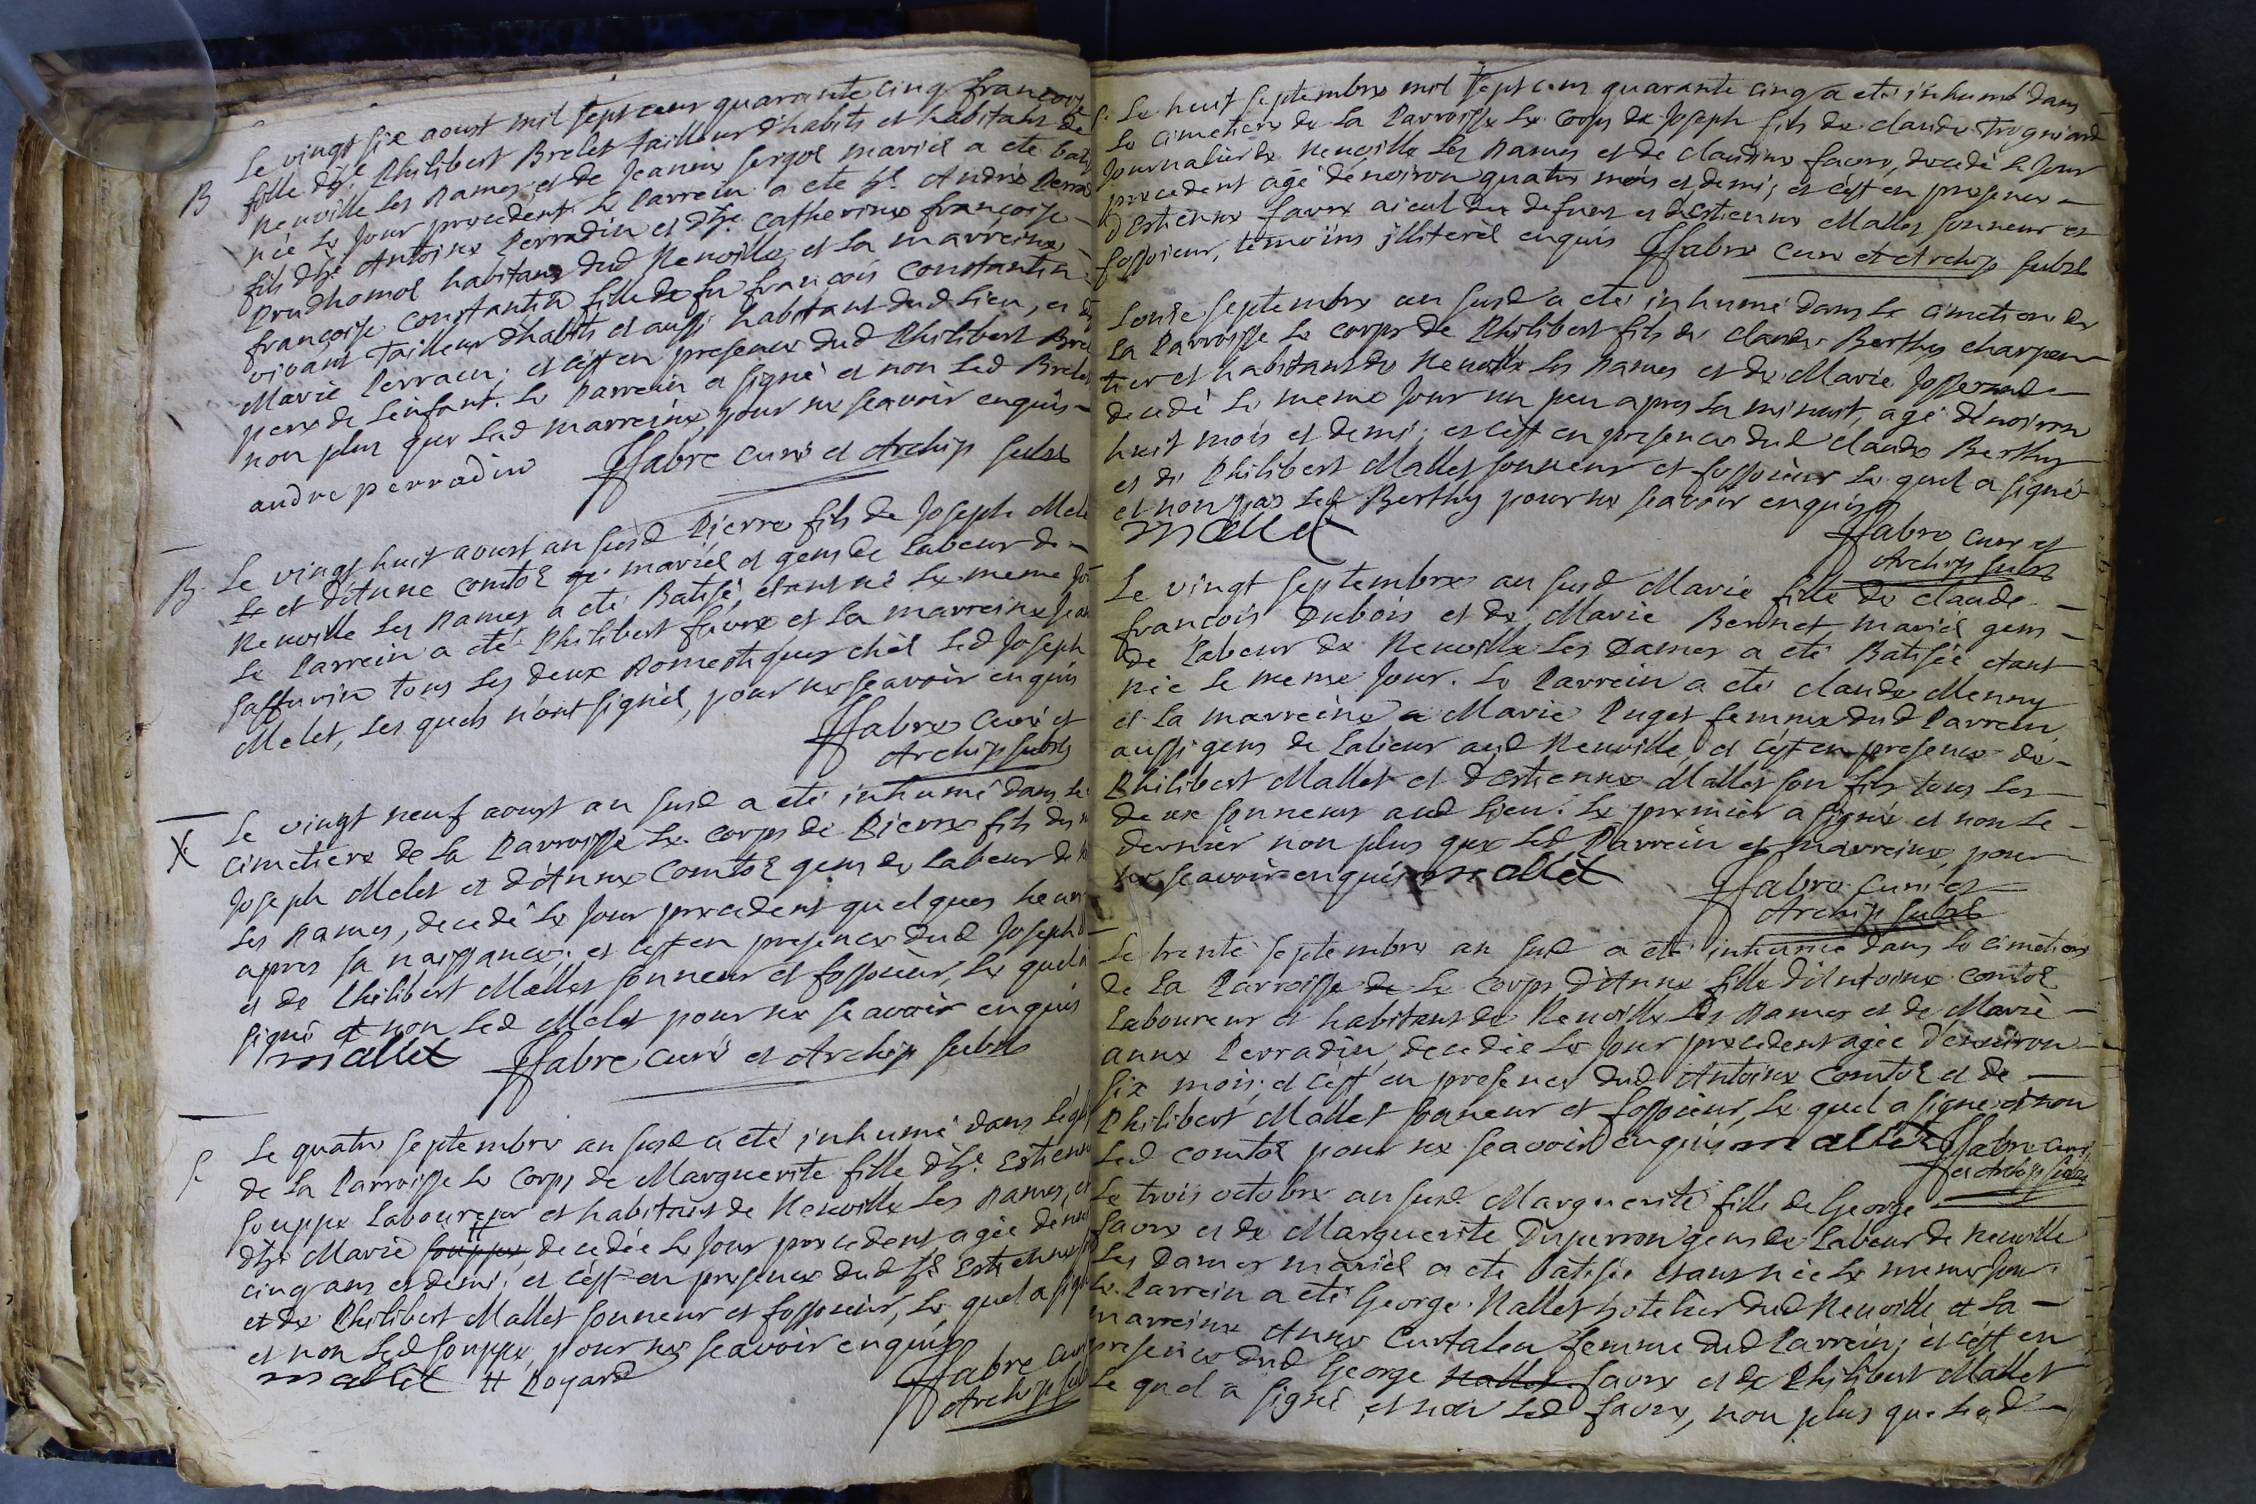 Le vingt six aoust mil sept cent quarante cinq francoise
B fille d'h.e Philibert Brelet tailleur d'habits et habitant de
Neuville les Dames et de Jeanne mariés a été bati
née le jour precedent. Le Parrein a eté h.e André Perra
fils d'h.e Antoine Perradin et d'h.e Catherine françoise
Prudhomol habitans dud Neuville, et la marreine
françoise Constantin fille de fu francois Constantin
vivant Tailleur d'habits et aussi habitant dud lieu, et d'h
Marie Perraud. et c'est en presence dud Philibert Brel
pere de l'enfant. Le Parrein a signé et non led Brelet
non plus que lad marreine, pour ne sçavoir enquis
andre perradin ffabre curé et Archip subst
B. Le vingt huit aoust an susd Pierre fils de Joseph Mele
et d'Anne Comtol mariés et gens de labeur de
Neuville les Dames a eté Batisé, etant né le meme jo
Le Parrein a eté Philibert favre et la marreine Jean
Saffurin tous les deux Domestiques chés led Joseph
Melet, les quels n'ont signés, pour ne sçavoir enquis
ffabre curé et
Archip subst
Le vingt neuf aoust an susd a eté inhumé dans le
cimetiere de la Parroisse le corps de Pierre fils de
Joseph Melet et d'Anne Comtol gens de labeur de N
les Dames, decedé le jour precedent quelques heur
apres sa naissance; et c'est en presence dud Joseph
et de Philibert Mallet sonneur et fossoieur, le quel a
signé et non led Melet pour ne sçavoir enquis
mallet ffabre curé et Archip subst
S Le quatre septembre an susd a eté inhumé dans l'égli
de la Parroisse le corps de Marguerite fille d'h.e Estienn
Souppe Laboureur et habitant de Neuville les Dames, et
d'h.e Marie # souppe, decedée le jour precedent agée d'envi
cinq ans et demi. et c'est en presence dud h.e Estienne
et de Philibert Mallet sonneur et fossoieur, le quel a sign
et non led Souppe, pour ne sçavoir enquis
mallet # Poyard ffabre cur
Archip sub
S. Le huit septembre mil sept cent quarante cinq a eté inhumé dans
le cimetiere de la Parroisse le corps de Joseph fils de claude Trogniard
Journalier de Neuville les Dames et de claudine favre, decedé le jour
precedent agé d'environ quatre mois et demi; et c'est en presence
d'Estienne favre aieul du defunt et d'Estienne Mallet sonneur et
fossoieur, temoins illiterés enquis ffabre cure et Archip subst
L'onze septembre an susd a eté inhumé dans le cimetiere de
la Parroisse le corps de Philibert fils de claude Berthy charpen
tier et habitant de Neuville les Dames et de Marie Josserand
decedé le meme jour un peu apres la minuit, agé d'environ
huit mois et demi; et c'est en presence dud claude Berthy
et de Philibert Mallet sonneur et fossoieur le quel a signé
et non pas led Berthy pour ne sçavoir enquis
mallet ffabre cure et
Archip subst
Le vingt septembre an susd Marie fille de claude
francois Dubois et de Marie Bernet mariés gens
de labeur de Neuville les Dames a eté Batisée etant
née le meme jour. Le Parrein a eté claude Menny
et la marreine a Marie Puget femme dud Parrein
aussi gens de labeur aud Neuville, et c'est en presence de
Philibert Mallet et d'Estienne Mallet son fils tous les
deux sonneurs aud lieu. Le premier a signé et non le
dernier non plus que led Parrein et marreine, pour
ne sçavoir enquis mallet ffabre curé et
Archip subst
Le trente septembre an susd a eté inhumée dans le cimetiere
de la Parroisse de le corps d'Anne fille d'Antoine comtol
Laboureur et habitant de Neuville les Dames et de Marie
anne Perradin, decedée le jour precedent agée d'environ
six mois; et c'est en presence dud Antoine Comtol et de
Philibert Mallet sonneur et fossoieur, le quel a signé et non
led comtol pour ne sçavoir enquis mallet ffabre curé
et Archip subst
Le trois octobre an susd Marguerite fille de George
favre et de Marguerite Duperron gens de labeur de Neuville
les Dames mariés a eté batisée etant née le meme jour.
Le Parrein a eté George Nallet hotelier dud Neuville et la
marreine Anne Curtalen femme dud Parrein; et c'est en
presence dud George Nallet favre et de Philibert Mallet
le quel a signé, et non led favre, non plus que led